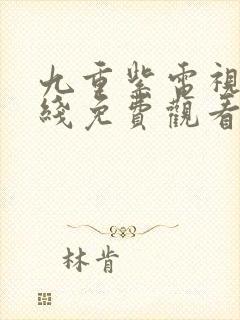 九重紫電視
綫免費觀看
林肯